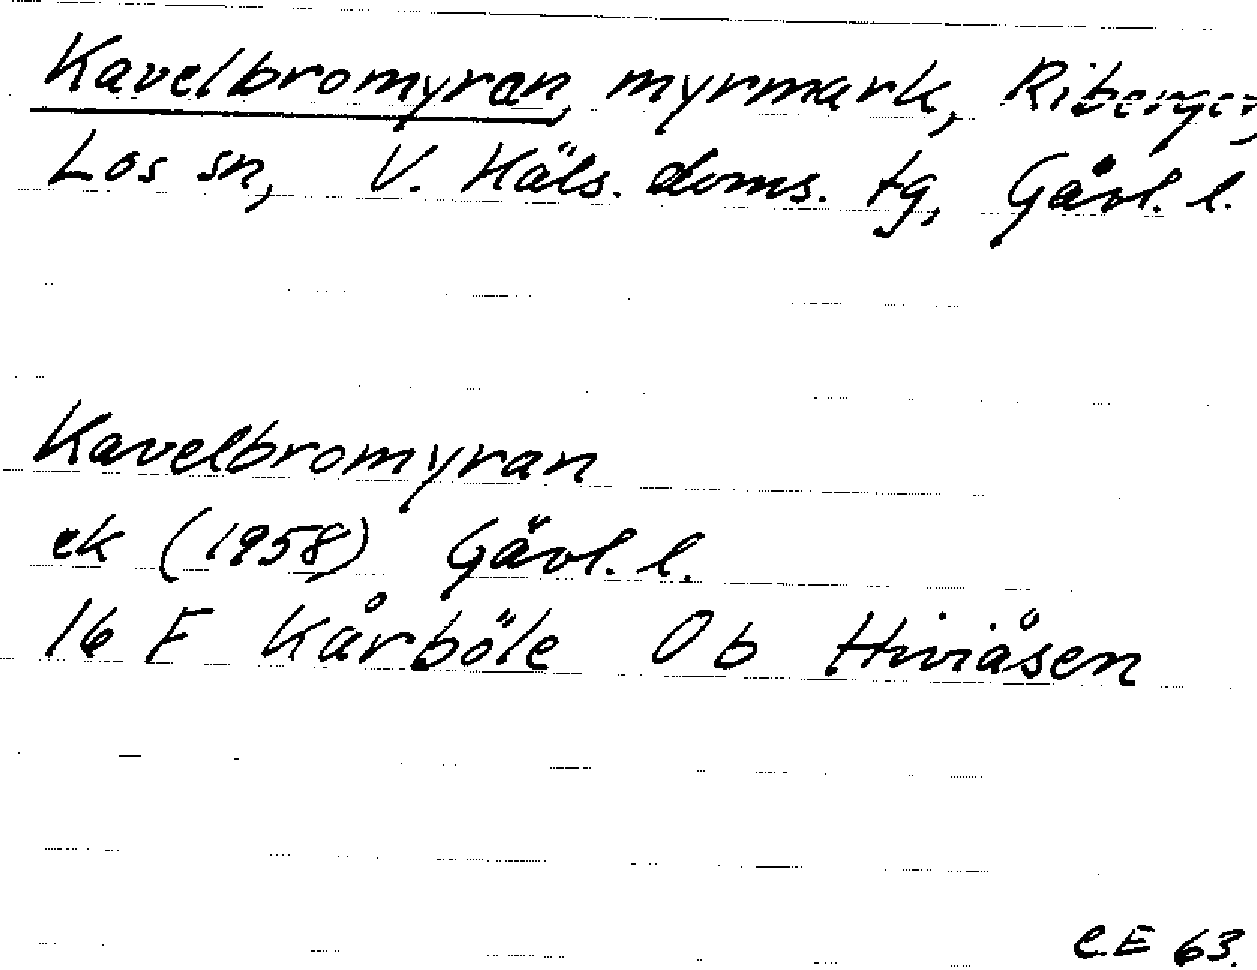 Kavelbromyran, myrmark, Riberget,
Los sn, V. Häls. doms. tg, Gävl. l.
Kavelbromyran
ek (1958) Gävl. l.
16 E Kårböle 0 b Hiviåsen
C.E 63.